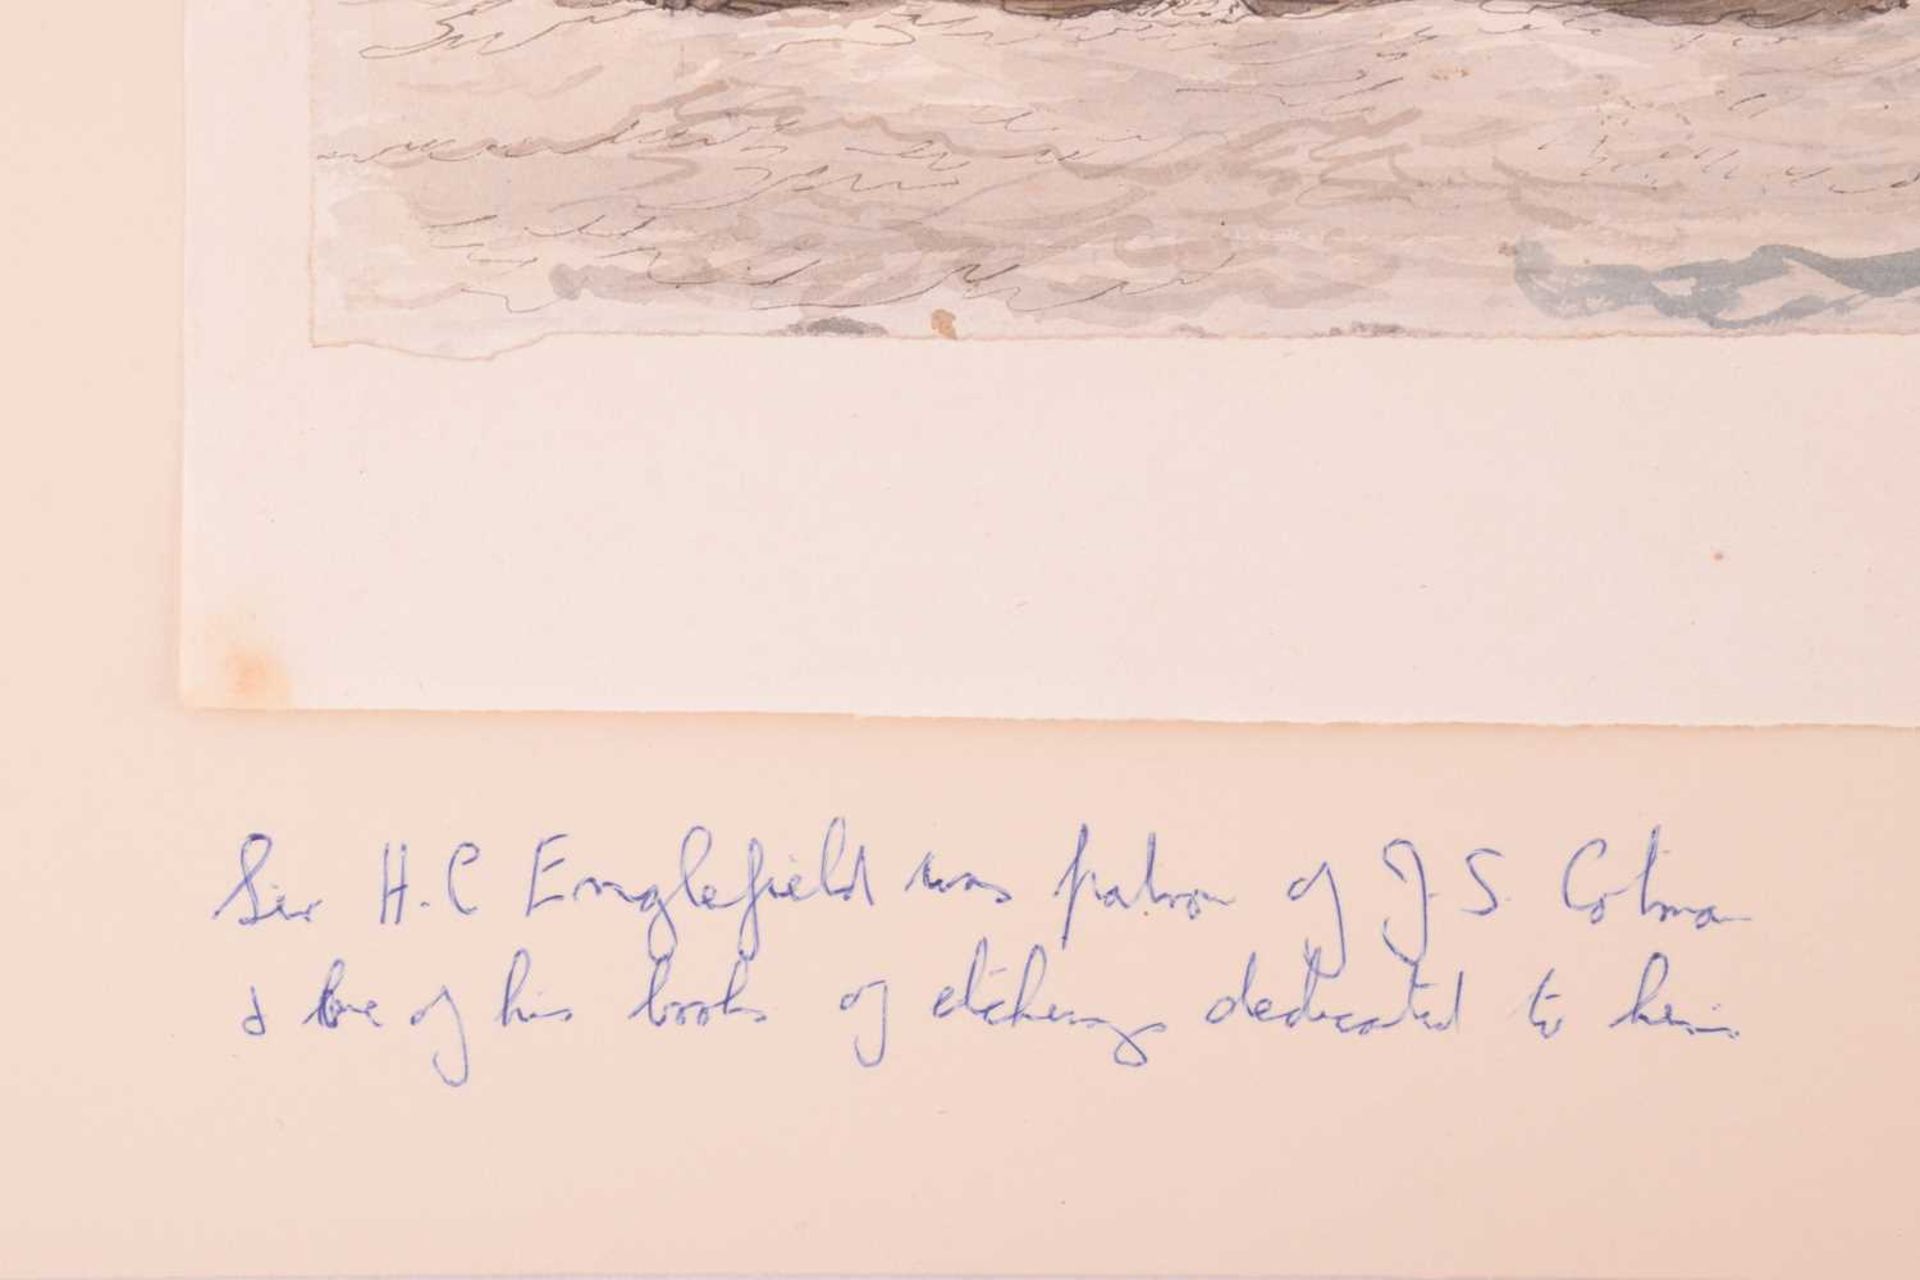 Sir H.C Englefield was patron of J.S. Cotman
& one of his books of etchings dedicated to him.